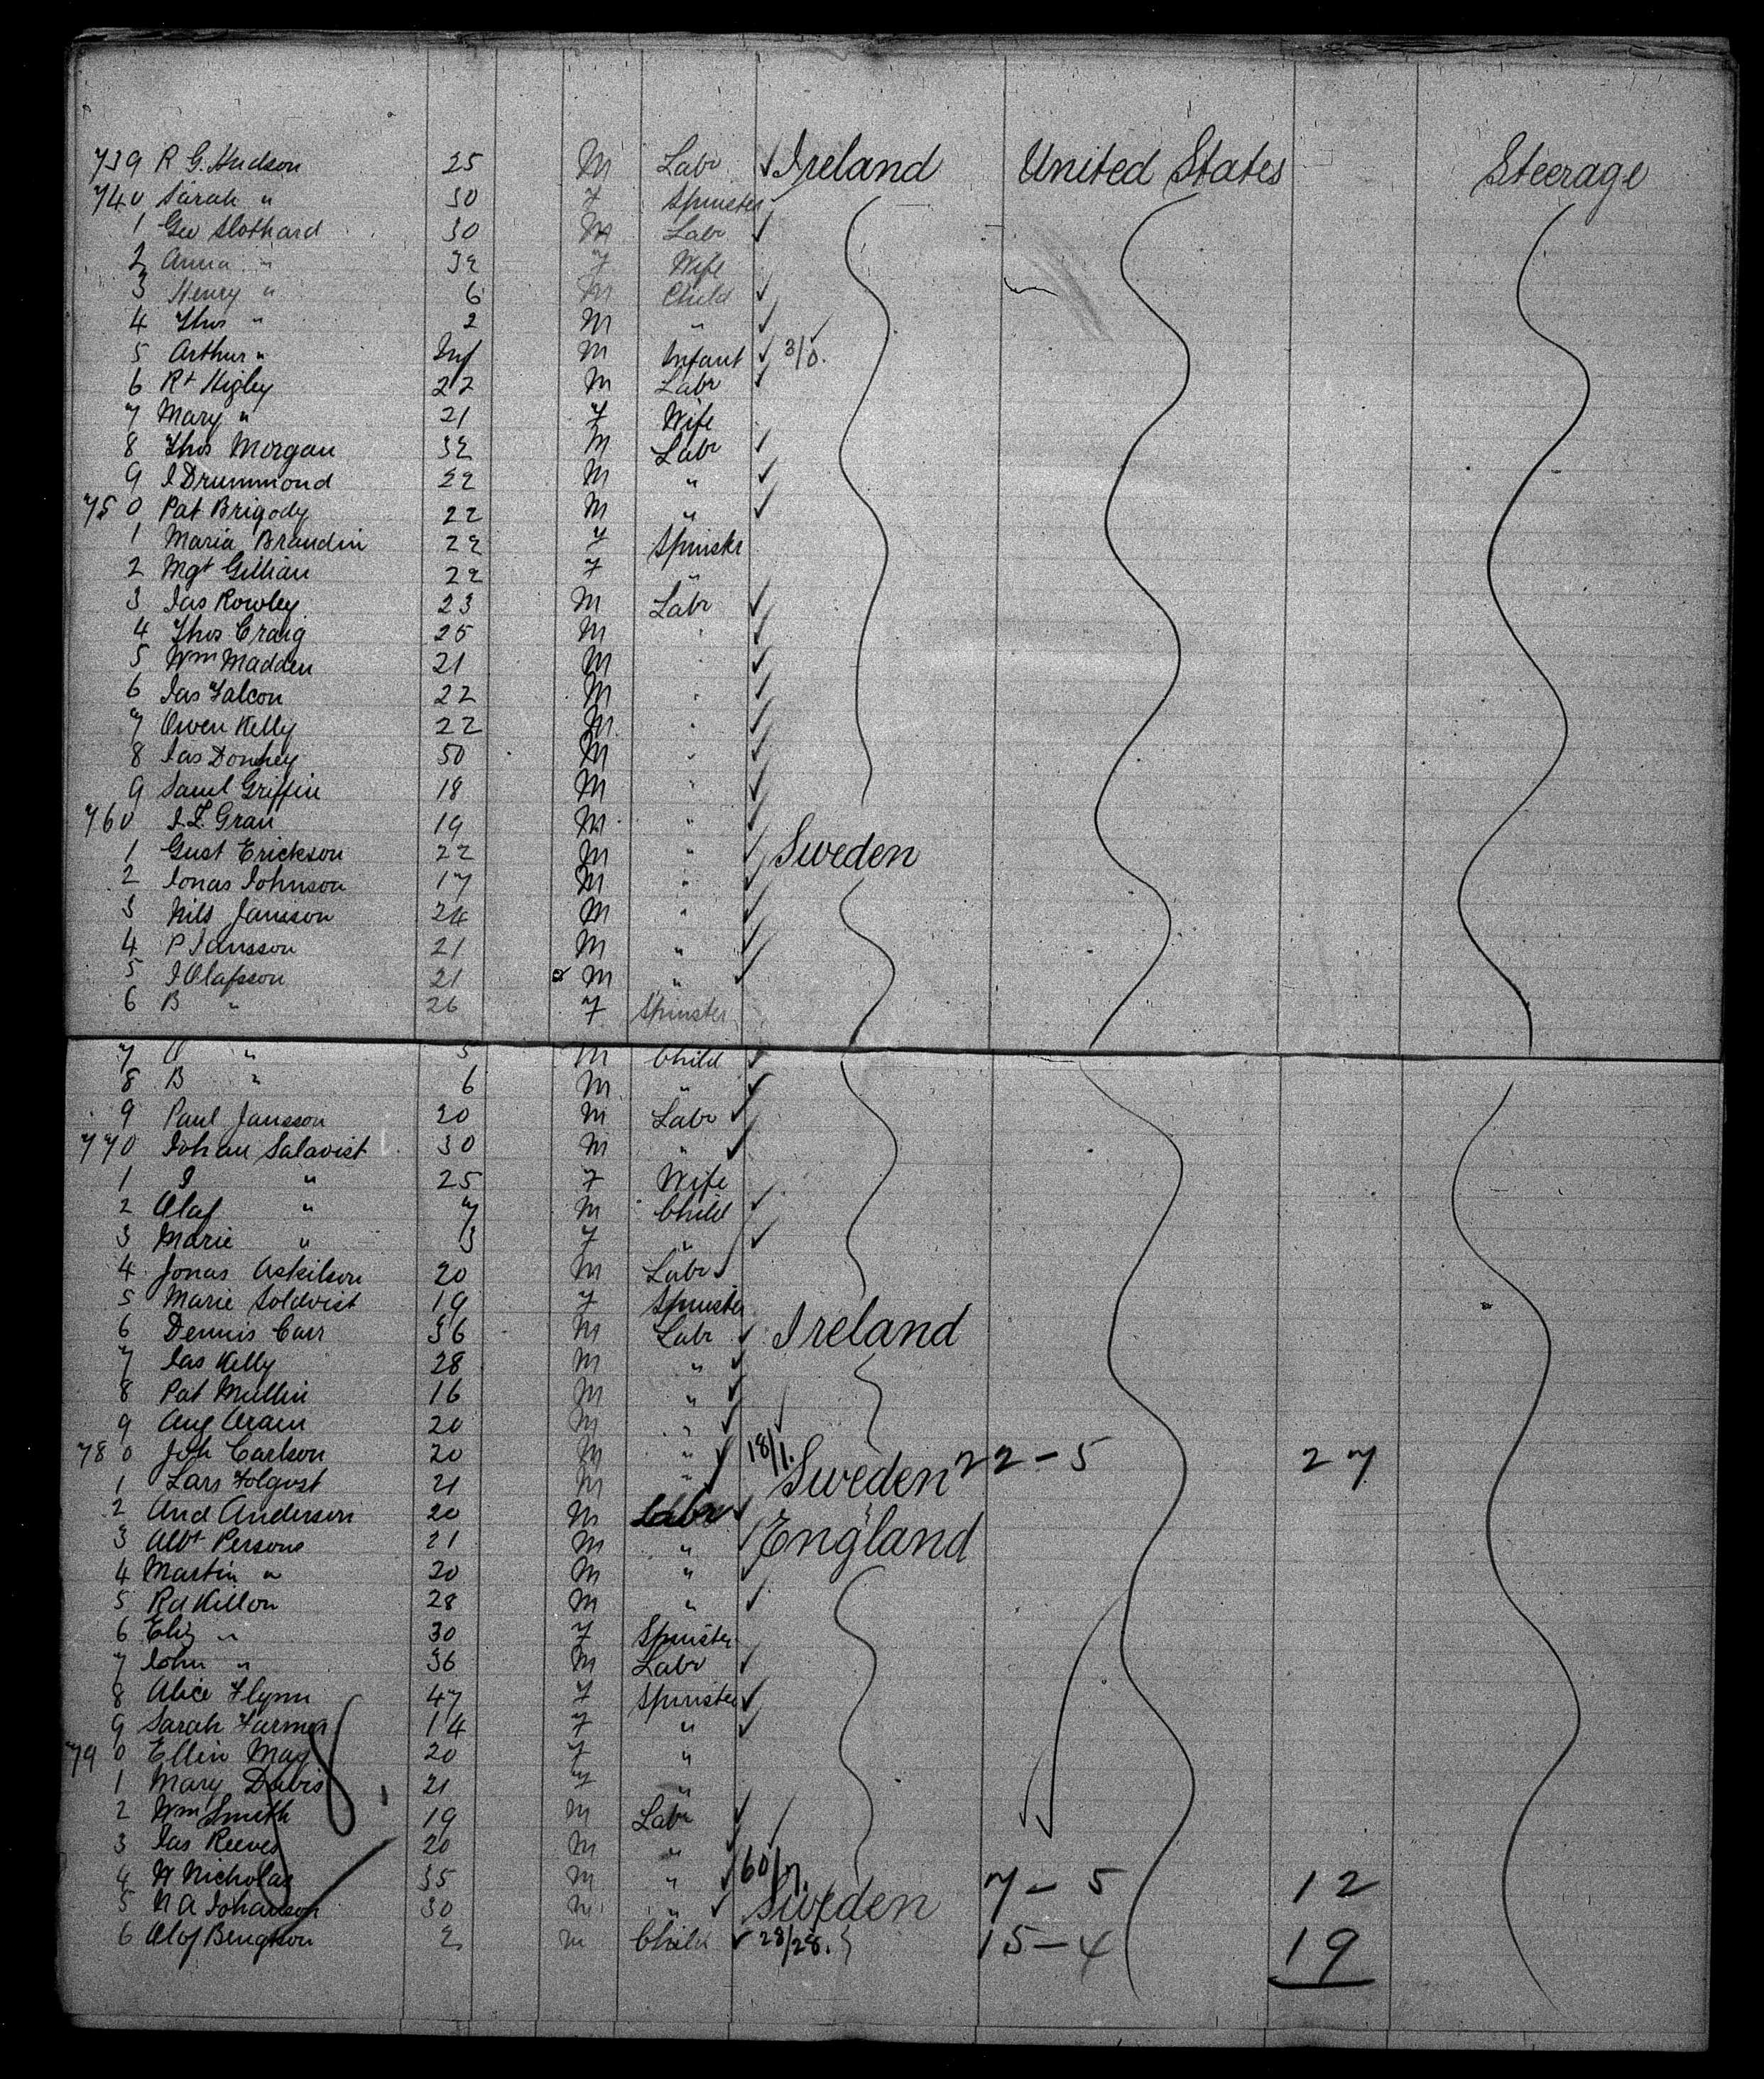 739 R G. Hudson 25 M Labr Ireland United States Steerage
740 Sarah " 30 F Spinster
1 Geo Slothard 30 M Labr
2 Anna " 32 F Wife
3 Henry " 6 M Child
4 Thos " 2 M "
5 Arthur " Inf M Infant 3/0.
6 Rt Higley 22 M Labr
7 Mary " 21 F Wife
8 Thos Morgan 32 M Labr
9 J Drummond 22 M "
750 Pat Brigody 22 M "
1 Maria Brandin 22 F Spinster
2 Mgt Gillian 22 F "
3 Jas Rowley 23 M Labr
4 Thos Craig 25 M "
5 Wm Madden 21 M "
6 Jas Falcon 22 M "
7 Owen Kelly 22 M "
8 Jas Donhey 50 M "
9 Saml Griffin 18 M "
760 J. F. Gran 19 M "
1 Gust Erickson 22 M " Sweden
2 Jonas Johnson 17 M "
3 Nils Jansson 24 M "
4 P Jansson 21 M "
5 J Olafsson 21 M "
6 B " 26 F Spinster
7 O " 5 M Child
8 B " 6 M "
9 Paul Jansson 20 M Labr
770 Johan Salavist 30 M "
1 J " 25 F Wife
2 Olaf " 7 M Child
3 Marie " 3 F "
4 Jonas Askilson 20 M Labr
5 Marie Soldvist 19 F Spinster
6 Dennis Carr 36 M Labr Ireland
7 Jas Kelly 28 M "
8 Pat Mullin 16 M "
9 Aug Aram 20 M "
780 Joh Carlson 20 M " 18/1. Sweden 22-5 27
1 Lars Folqvst 21 M "
2 And Anderson 20 M Labr
3 Albt Persons 21 M " England
4 Martin " 20 M "
5 Rd Killon 28 M "
6 Eliz " 30 F Spinster
7 John " 36 M Labr
8 Alice Flynn 47 F Spinster
9 Sarah Farmer 14 F "
790 Ellin May 20 F "
1 Mary Davis 21 F "
2 Wm Smith 19 M Labr
3 Jas Reeves 20 M "
4 W Nicholas 35 M " 60/7. 7-5 12
5 N A Johanson 30 M " Sweden
6 Olof Bengtson 2 M Child 28/28. 15-4 19